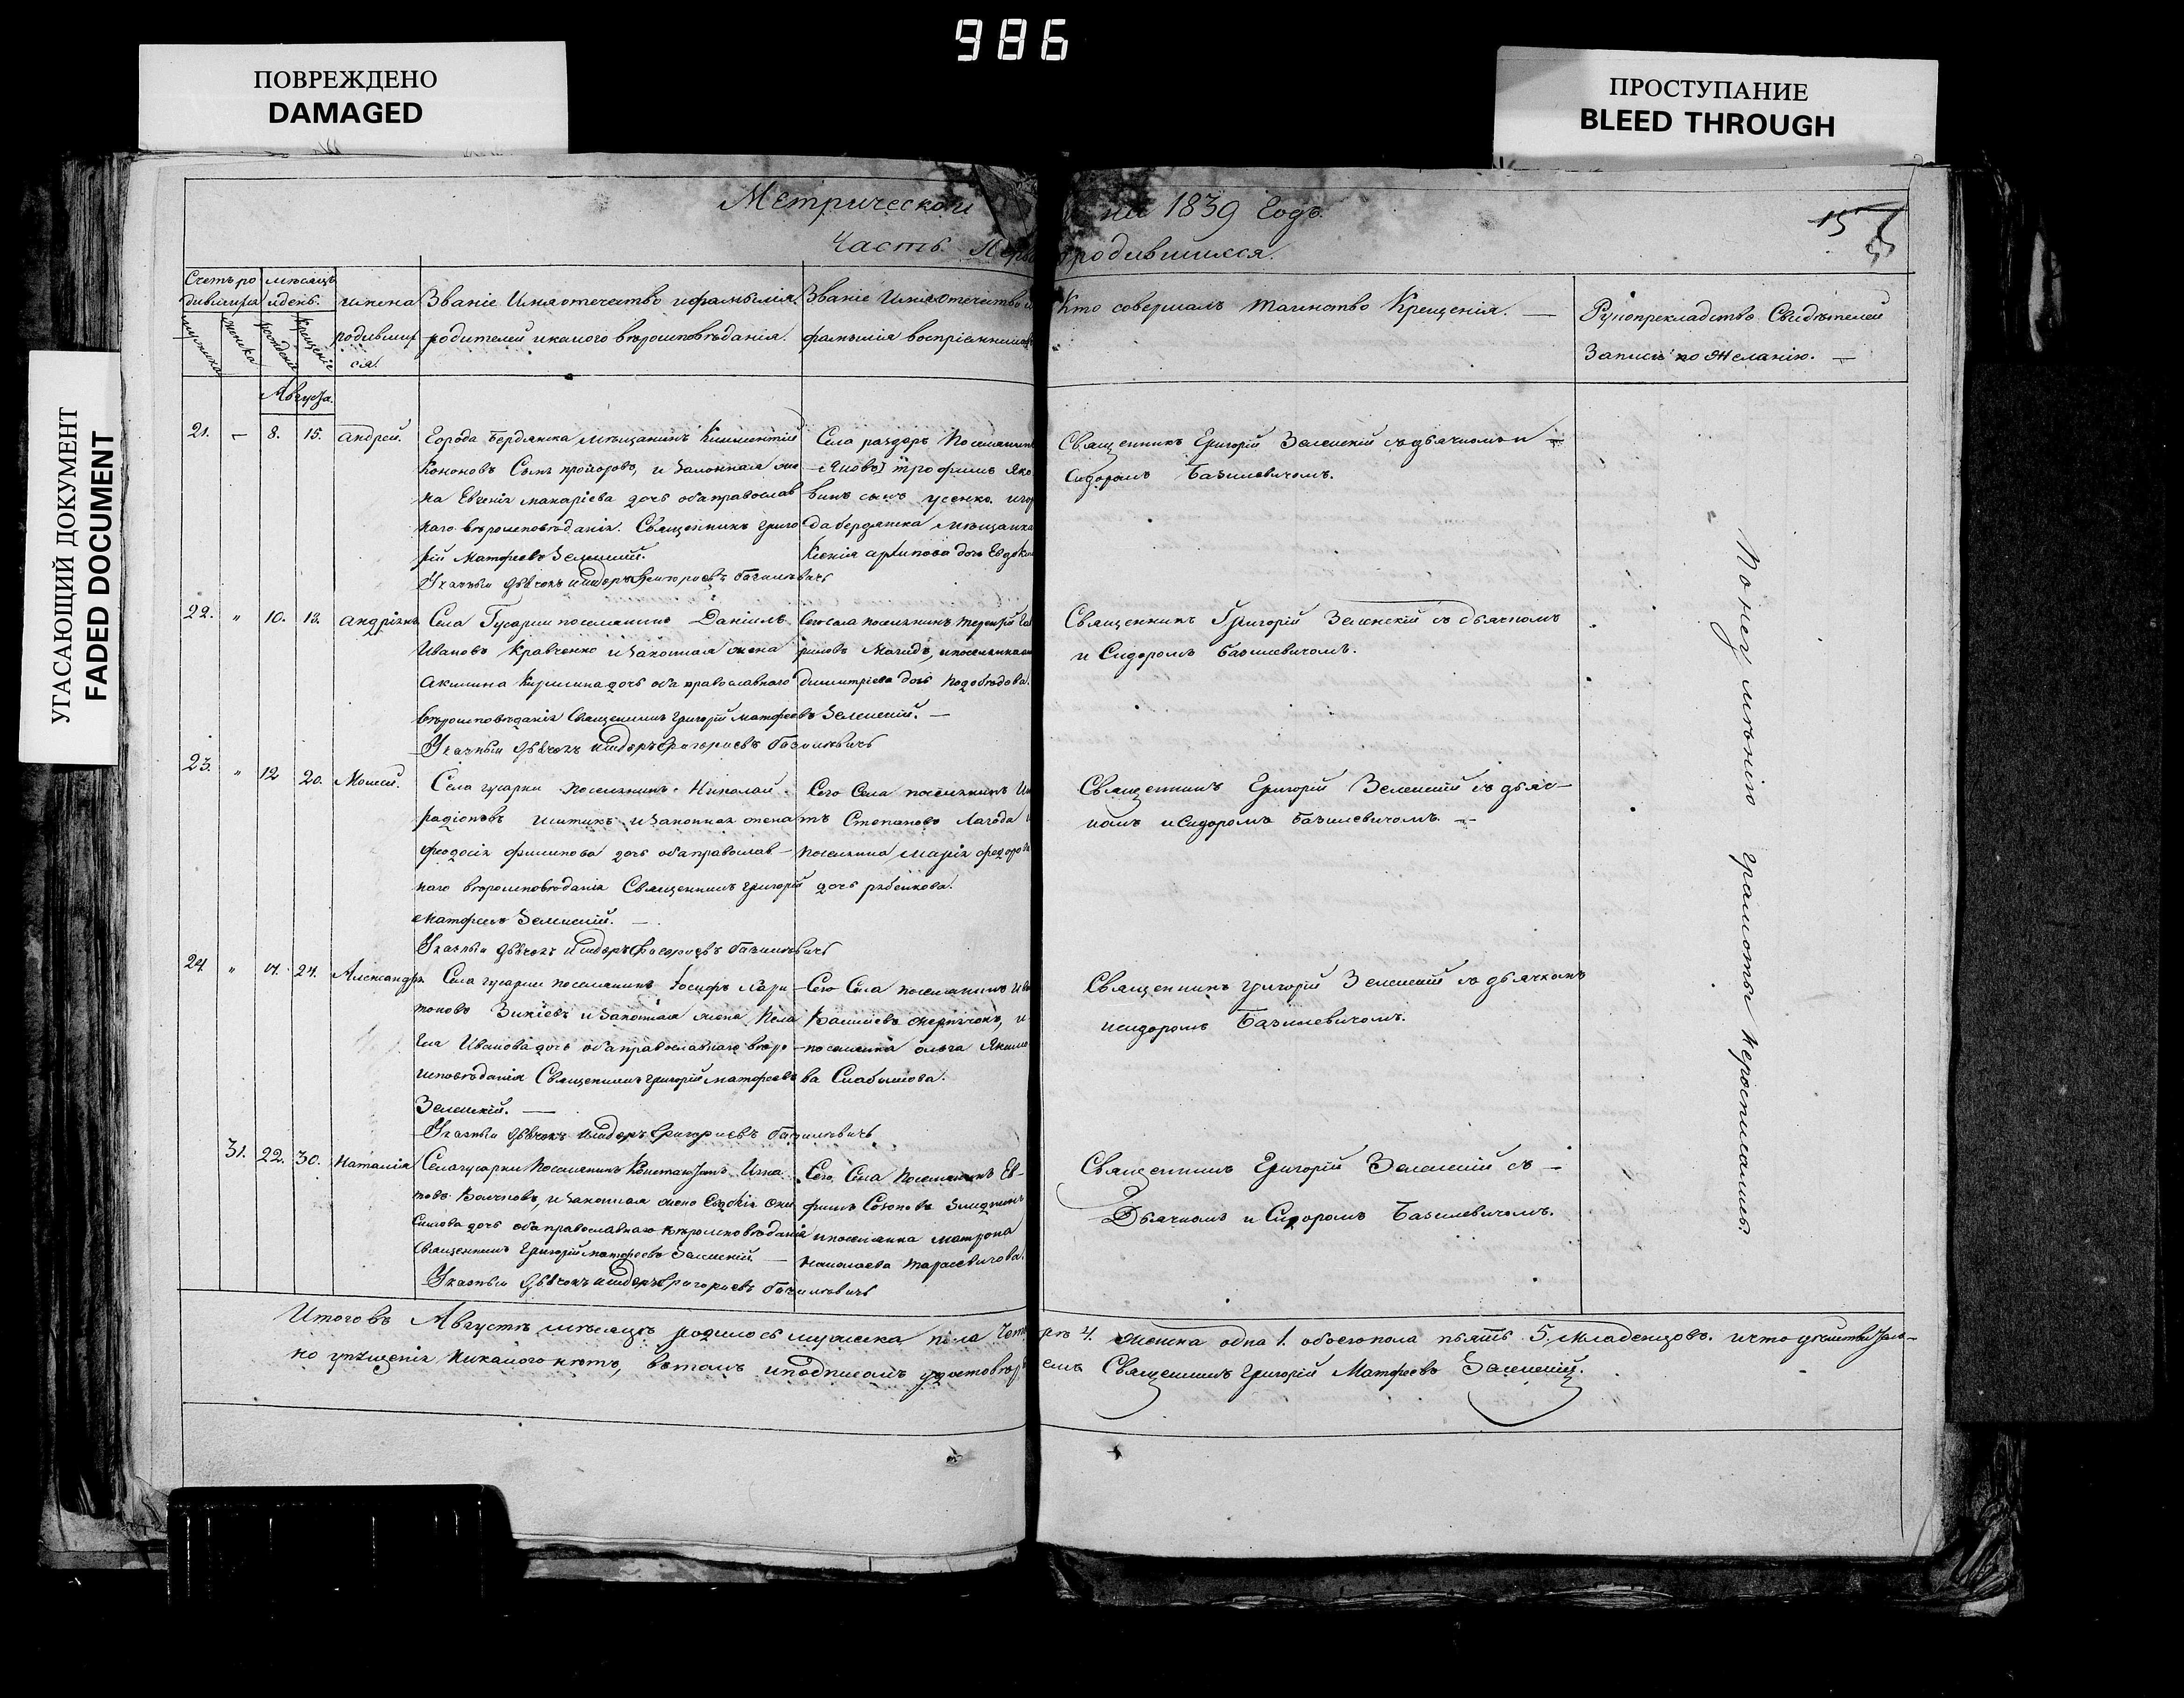 986
ПОВРЕЖДЕНО
DAMAGED
ПРОСТУПАНИЕ
BLEED THROUGH
УГАСАЮЩИЙ ДОКУМЕНТ
FADED DOCUMENT
Метрической на 1839 Годъ.
15
Часть родившихся.
Счетъ родившихся
мужеска
женска
мѣсяцъ и день.
рождения
крещение
имена родившихся.
Званіе Имя отечество и фамилія родителей и какого вѣроисповѣданія.
Званіе Имя отечество и фамилія воспріемников
Кто совершалъ таинство Крещенія. —
Рукоприкладство Свидѣтелей
Записи по желанію. —
Августа.
21. – 8. 15. Андрей.
Города Бердянска мѣщанинъ Климентій
Кононовъ Сынъ и законная же
на Евгенія макаріева дочь оба православ
наго вѣроисповѣданія. Священникъ Григо
рій Матфеевъ Зеленскій.
Указный дьячокъ Исидоръ Григориевъ базилевичъ
Села раздоръ Поселянинъ
трофимъ Яко
вивъ сынъ усенко. и гор
да бердянска мѣщанка
Ксенія архипова дочь Евдоким
Священникъ Григорій Зеленскій съ дьячкомъ и
Сидоромъ Базилевичомъ.
22. " 10. 13. Андріянъ
Села Гусарки поселянинъ Даніилъ
Ивановъ Кравченко и законная жена
Акилина Кирилина дочь оба православного
вѣроисповѣданія Священникъ Григорій матфеевъ Зеленскій. —
Указный дьячокъ Исидоръ Григориевъ базилевичъ
Сего села поселянинъ терентій
и поселянка
димитріева дочь
Священникъ Григорій Зеленскій съ дьячкомъ
и Сидоромъ базилевичомъ.
23. " 12 20. Моисей.
Села гусарки поселянинъ Николай
радіоновъ и законная жена
феодосія филипова дочь оба православ—
наго вѣроисповѣданія Священникъ Григорій
матфеевъ Зеленскій. —
Указный дьячокъ Исидоръ Григориевъ базилевичъ
Сего Села поселянинъ Иг
тъ Степановъ Лагода и
поселянка марія федоро
дочь рябенкова.
Священникъ Григорій Зеленскій съ дьяч—
комъ и Сидоромъ базилевичомъ. —
24 " 24. Александръ
Села гусарки поселянинъ Іосифъ Хари
тоновъ и законная жена Пела
гия Иванова дочь оба православнаго вѣро—
исповѣданія Священникъ григорій матфеевъ
Зеленскій. —
Указный дьячокъ Исидоръ Григориевъ базилевичъ
Сего Села поселянинъ
и
поселянка ольга Якимо
ва
Священникъ григорій Зеленскій съ дьячкомъ
исидоромъ Базилевичомъ.
31. 22. 30. Наталія
Села гусарки Поселянинъ Константинъ Игна
товъ и законная жена Евдокія Они
симова дочь оба православнаго вѣроисповѣданія
Священникъ Григорій матфеевъ Зеленскій —
Указный дьячокъ Исидоръ Григориевъ базилевичъ
Сего Села Поселянинъ Ев—
фимъ
и поселянка матрона
николаева тарасевичова.
Священникъ Григорій Зеленскій съ —
Дьячкомъ и Сидоромъ Базилевичомъ.
По неумѣнію грамоты неросписались.
Итого въ Августѣ мѣсяцѣ родилось мужеска пола четы ре 4. женска одна 1. обоего пола пѣять 5. младенцовъ. и что
но упущенія никакого нѣтъ, въ томъ и подписомъ удостовѣр емъ Священникъ Григорій Матфеевъ Зеленскій.